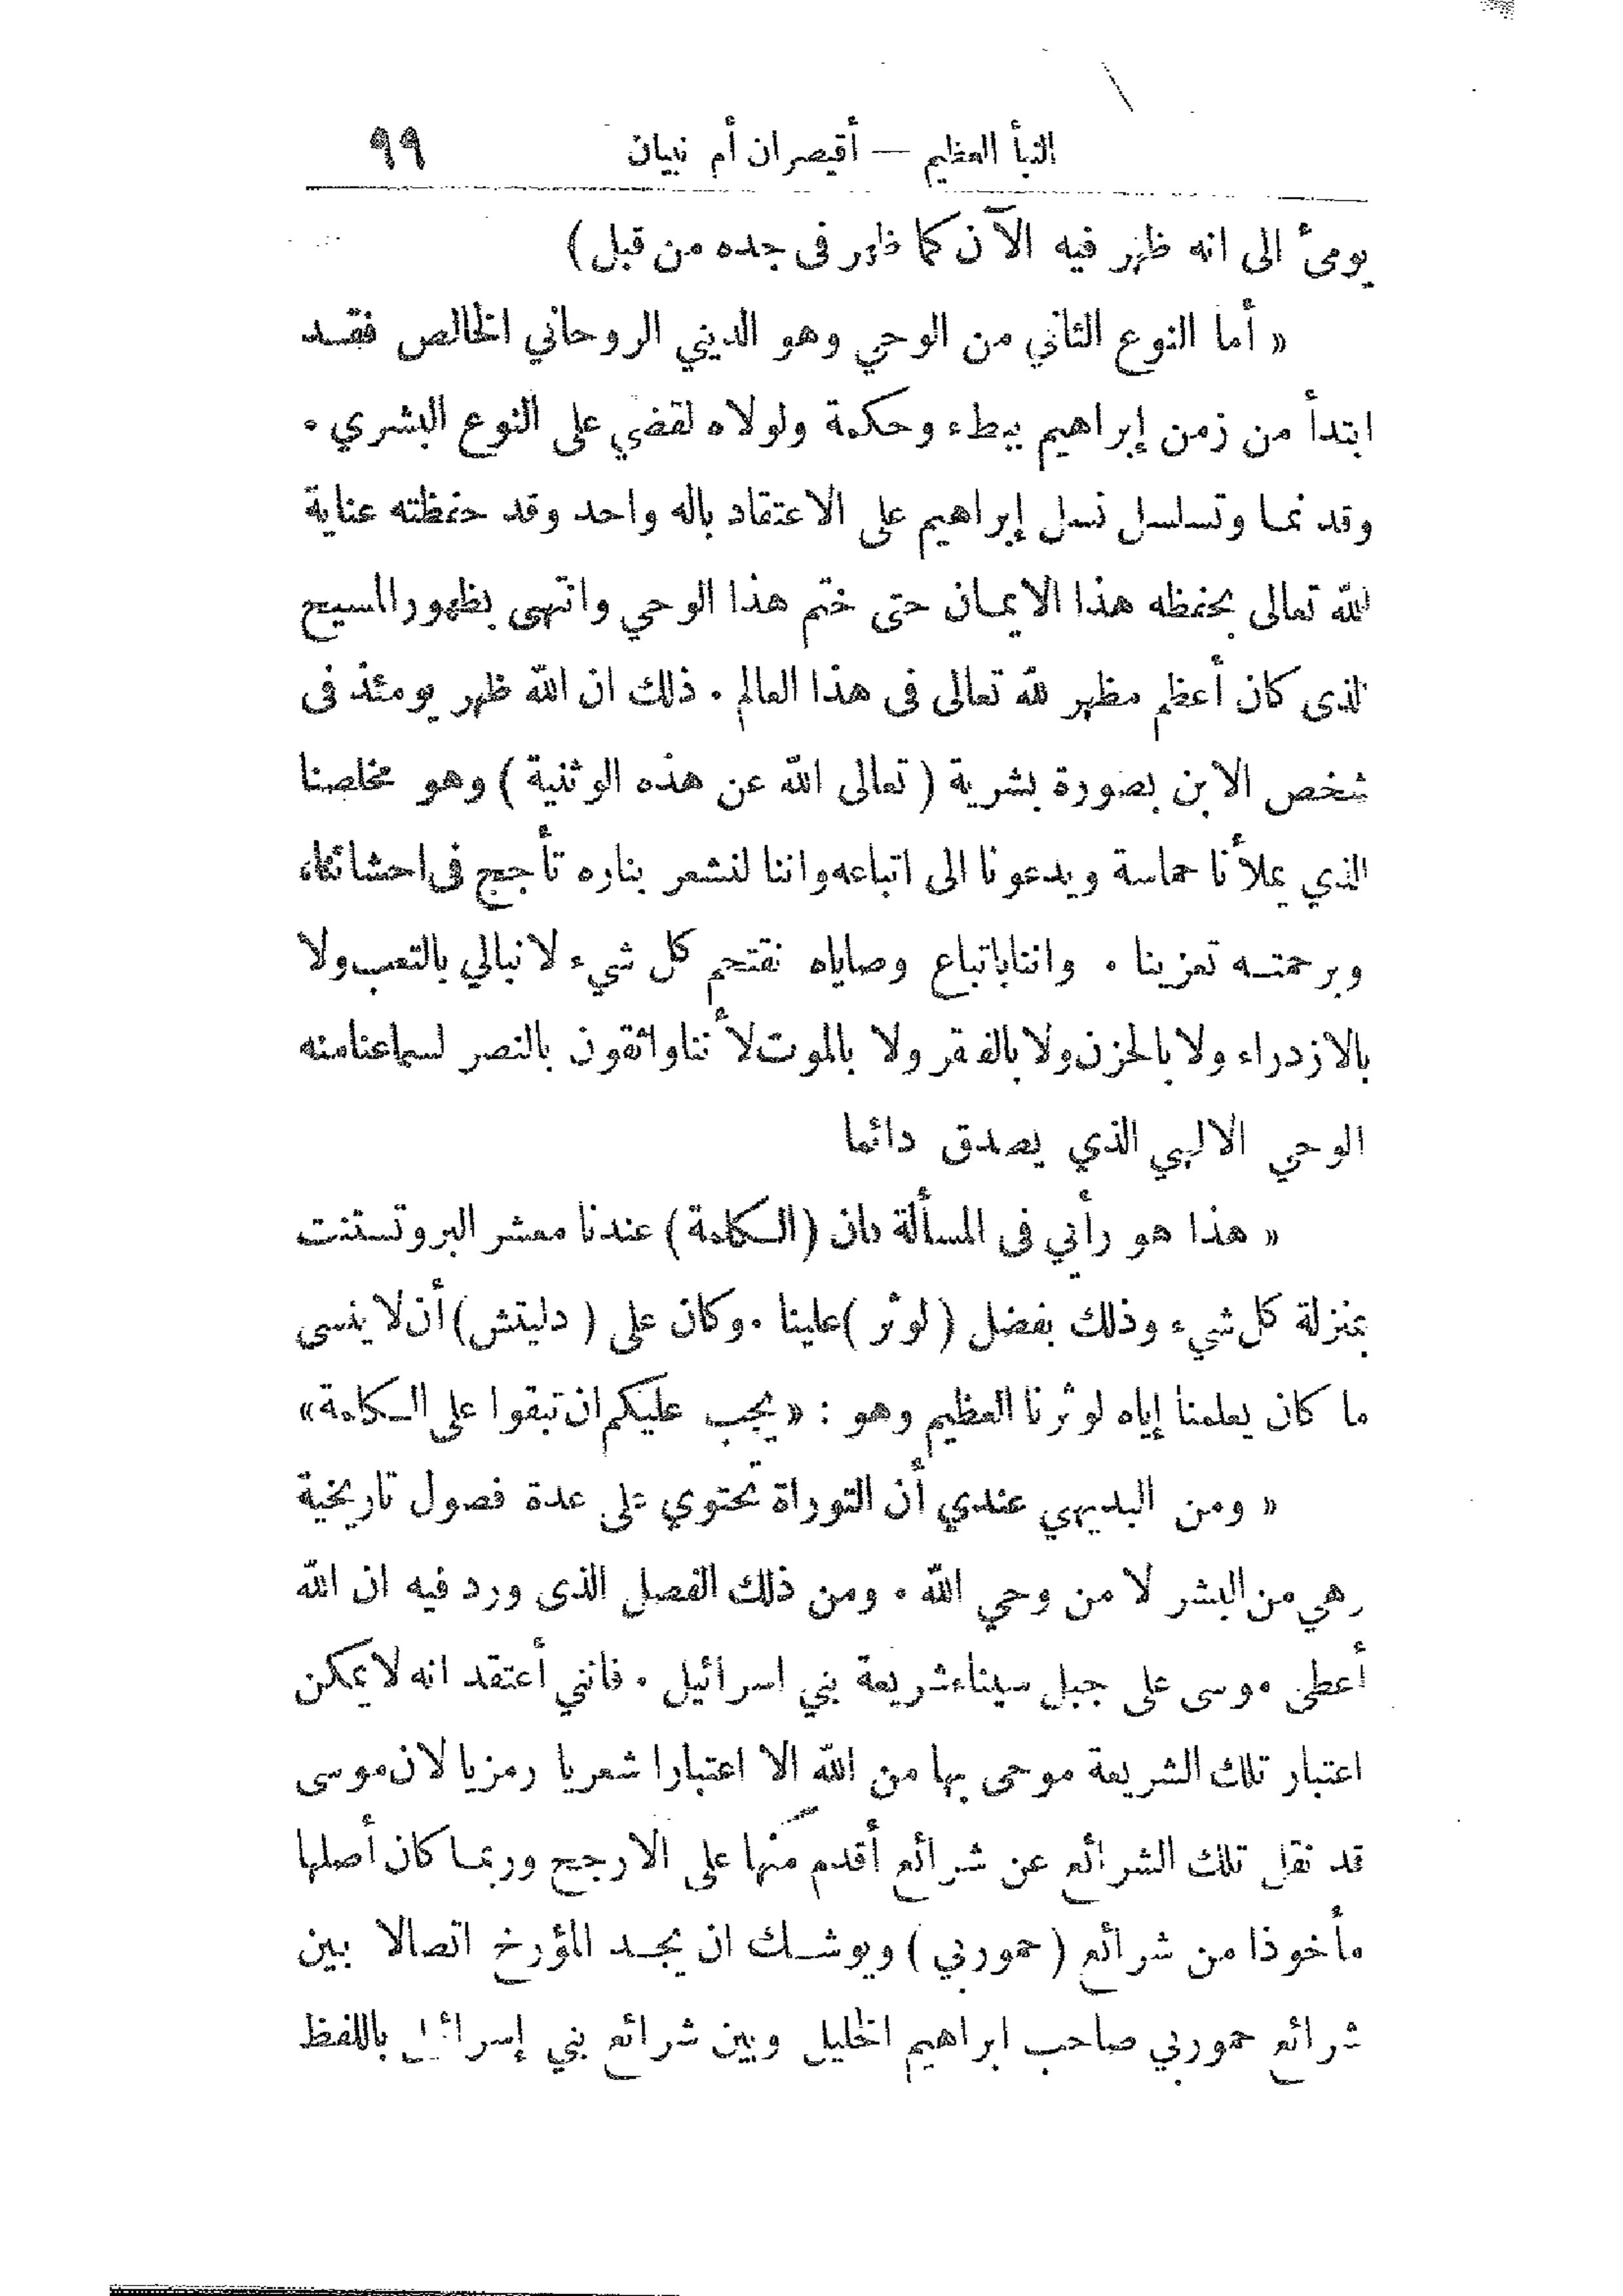 النبأ العظيم — أقيصران أم نبيان ٩٩
يومئ الى انه ظهر فيه الآن كما ظهر فى جده من قبل)
« أما النوع الثاني من الوحي وهو الديني الروحاني الخالص فقد
ابتدأ من زمن إبراهيم ببطء وحكمة ولولاه لقضي على النوع البشري .
وقد نما وتسلسل نسل إبراهيم على الاعتقاد باله واحد وقد حفظته عناية
لله تعالى بحفظه هذا الايمان حتى ختم هذا الوحي وانتهى بظهور المسيح
لذى كان أعظم مظهر لله تعالى فى هذا العالم . ذلك ان الله ظهر يومئذ فى
شخص الابن بصورة بشرية ( تعالى الله عن هذه الوثنية ) وهو مخلصنا
الذي يملأنا حماسة ويدعونا الى اتباعه واننا لنشعر بناره تأجج فى احشائنا،
وبرحمته تعزينا . واننا باتباع وصاياه نقتحم كل شيء لا نبالي بالتعب ولا
بالازدراء ولا بالحزن ولا بالفقر ولا بالموت لأننا واثقون بالنصر لسماعنا منه
الوحي الالهي الذي يصدق دائما
« هذا هو رأيي فى المسألة فان (الكلمة) عندنا معشر البروتستنت
بمنزلة كل شيء وذلك بفضل ( لوثر ) علينا . وكان على ( دليتش) أن لا ينسى
ما كان يعلمنا إياه لوثرنا العظيم وهو : « يجب عليكم ان تبقوا على الكلمة »
« ومن البديهي عندي أن التوراة تحتوي على عدة فصول تاريخية
وهي من البشر لا من وحي الله . ومن ذلك الفصل الذى ورد فيه ان الله
أعطى موسى على جبل سيناء شريعة بني اسرائيل . فانني أعتقد انه لا يمكن
اعتبار تلك الشريعة موحى بها من الله الا اعتبارا شعريا رمزيا لان موسى
قد نقل تلك الشرائع عن شرائع أقدم منها على الارجح وربما كان أصلها
مأخوذا من شرائع ( حموربي ) ويوشك ان يجد المؤرخ اتصالا بين
شرائع حموربي صاحب ابراهيم الخليل وبين شرائع بني إسرائيل باللفظ